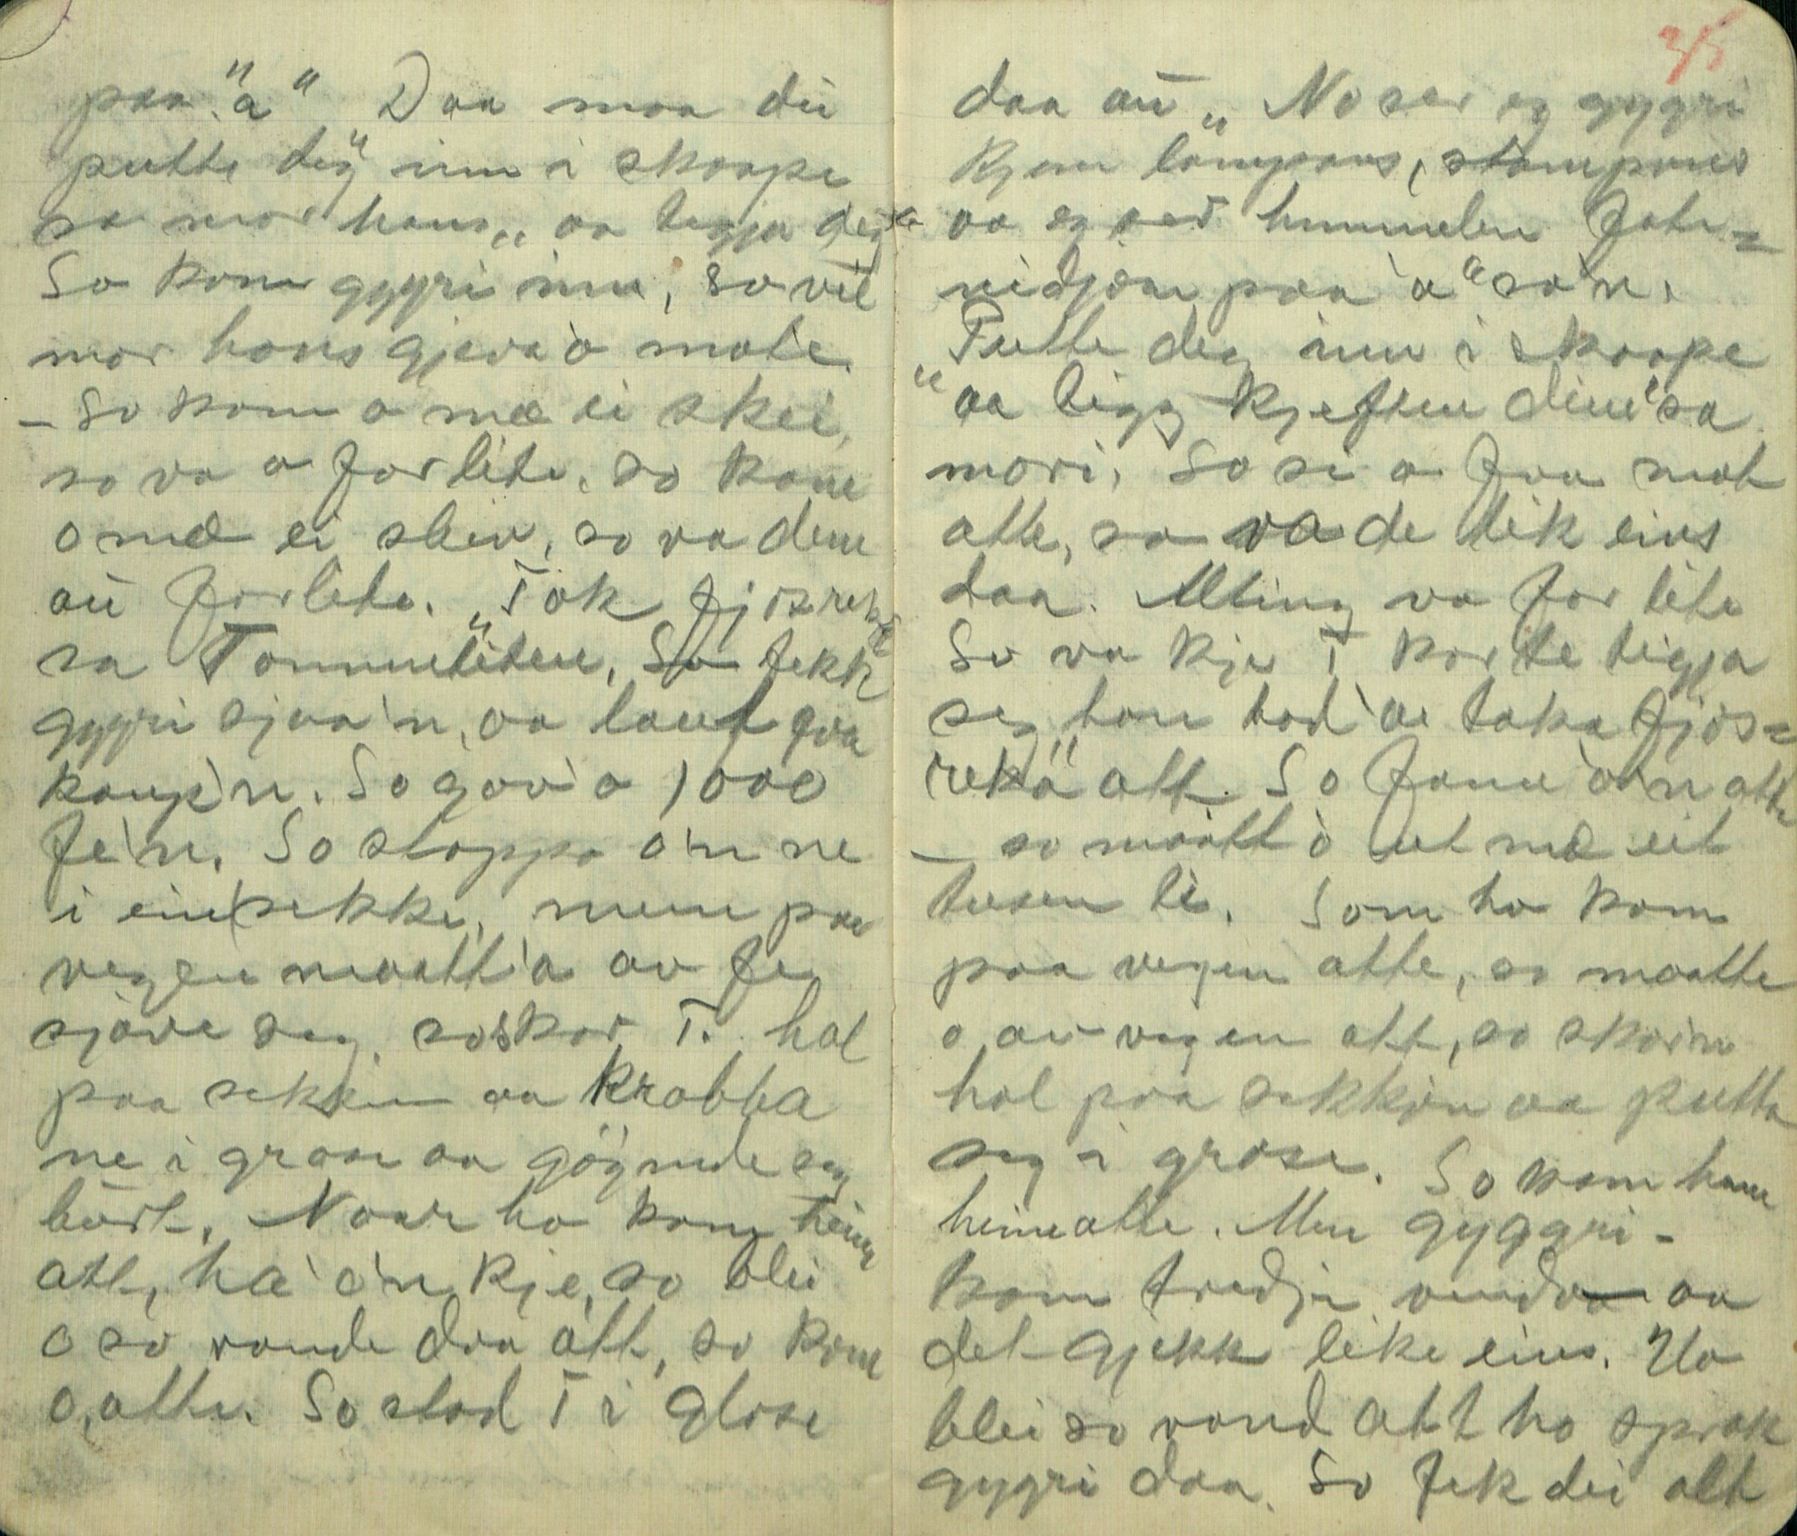 paa "a" Daa maa du
putte deg" inn i skaape
sa mor hans „ aa teggja deg"
So kom gygri inn, so vil
mor hans gjeva'o mate.
– So kom o mæ ei skei,
so va o for lite. so kom
o mæ ei sleiv, so va denn
au for lite. „Tak fjosrekå
sa Tommeliten. So fekk
gygri sjaa'n, aa laut faa
kaup'n. So gav'o 1000
fe'n. So stappa o'n ne
i ein sekk, menn paa
vegen maatt'o av fe
sjøve seg. so skar T. hol
paa sekkjen aa krabba
ne i grase aa gøgnde seg
burt. Naar ho kom heim
att, ha' o'n kje, so blei
o so vonde daa att, so kom
o atte. So stod T i glase
2/5
daa au „ No ser eg gygri
kjem lampans, stampans
aa eg ser himmelen fate-
nidjom paa 'o" sa'n.
Putte deg inn i skaape
"aa tigg kjeften din" sa
mori. So si o faa mat
atte, so va de lik eins
daa. Alting va for lite
So va kje T kar te tigja
seg han bad'ae taka fjos-
rekå" att. So fann o'n atte
– so maatt'o ut mæ eit
tusen te. Som ho kom
paa vegen atte, so maatte
o av vegen att, so skar'n
hol paa sekkjen aa putta
seg i grase. So kom han
heim atte. Men gyggri –
kom tredje vendo aa
det gjekk like eins. Ho
blei so vond att ho sprak
gygri daa. So fek dei alt